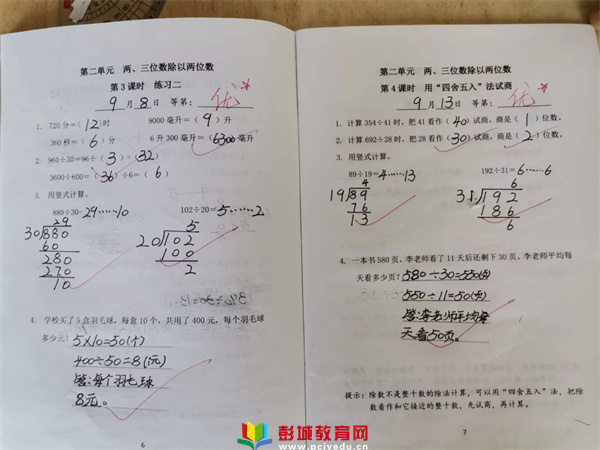 第二单元 两、三位数除以两位数
第 3 课时 练习二
9 月 8 日 等第: 优
1. 720 分=( 12 )时 9000 毫升=( 9 )升
360 秒=( 6 )分 6 升 300 毫升=( 6300 )毫升
2. 960÷30=96÷( 3 )=(32)
3600÷600=( 36 )÷6=( 6 )
3. 用竖式计算。
880÷30=29……10 102÷20=5……2
29
30 880
60
280
270
10
5
20 102
100
2
4. 学校买了 5 盒羽毛球，每盒 10 个，共用了 400 元，每个羽毛球
多少元? 5×10=50(个)
400÷50=8(元)
答:每个羽毛球
8元。
6
第二单元 两、三位数除以两位数
第 4 课时 用“四舍五入”法试商
9 月 13 日 等第: 优
1. 计算 354÷41 时，把 41 看作( 40 )试商，商是( 1 )位数。
2. 计算 692÷28 时，把 28 看作( 30 )试商，商是( 2 )位数。
3. 用竖式计算。
89÷19=4……13 192÷31=6……6
4
19 89
76
13
6
31 192
186
6
4. 一本书 580 页，李老师看了 11 天后还剩下 30 页，李老师平均每
天看多少页? 580÷30=550(页)
550÷11=50(页)
答:李老师平均每
天看50页。
提示: 除数不是整十数的除法计算，可以用“四舍五入”法，把除
数看作和它接近的整十数，先试商，再计算。
7
彭城教育网
www.pcjyedu.cn